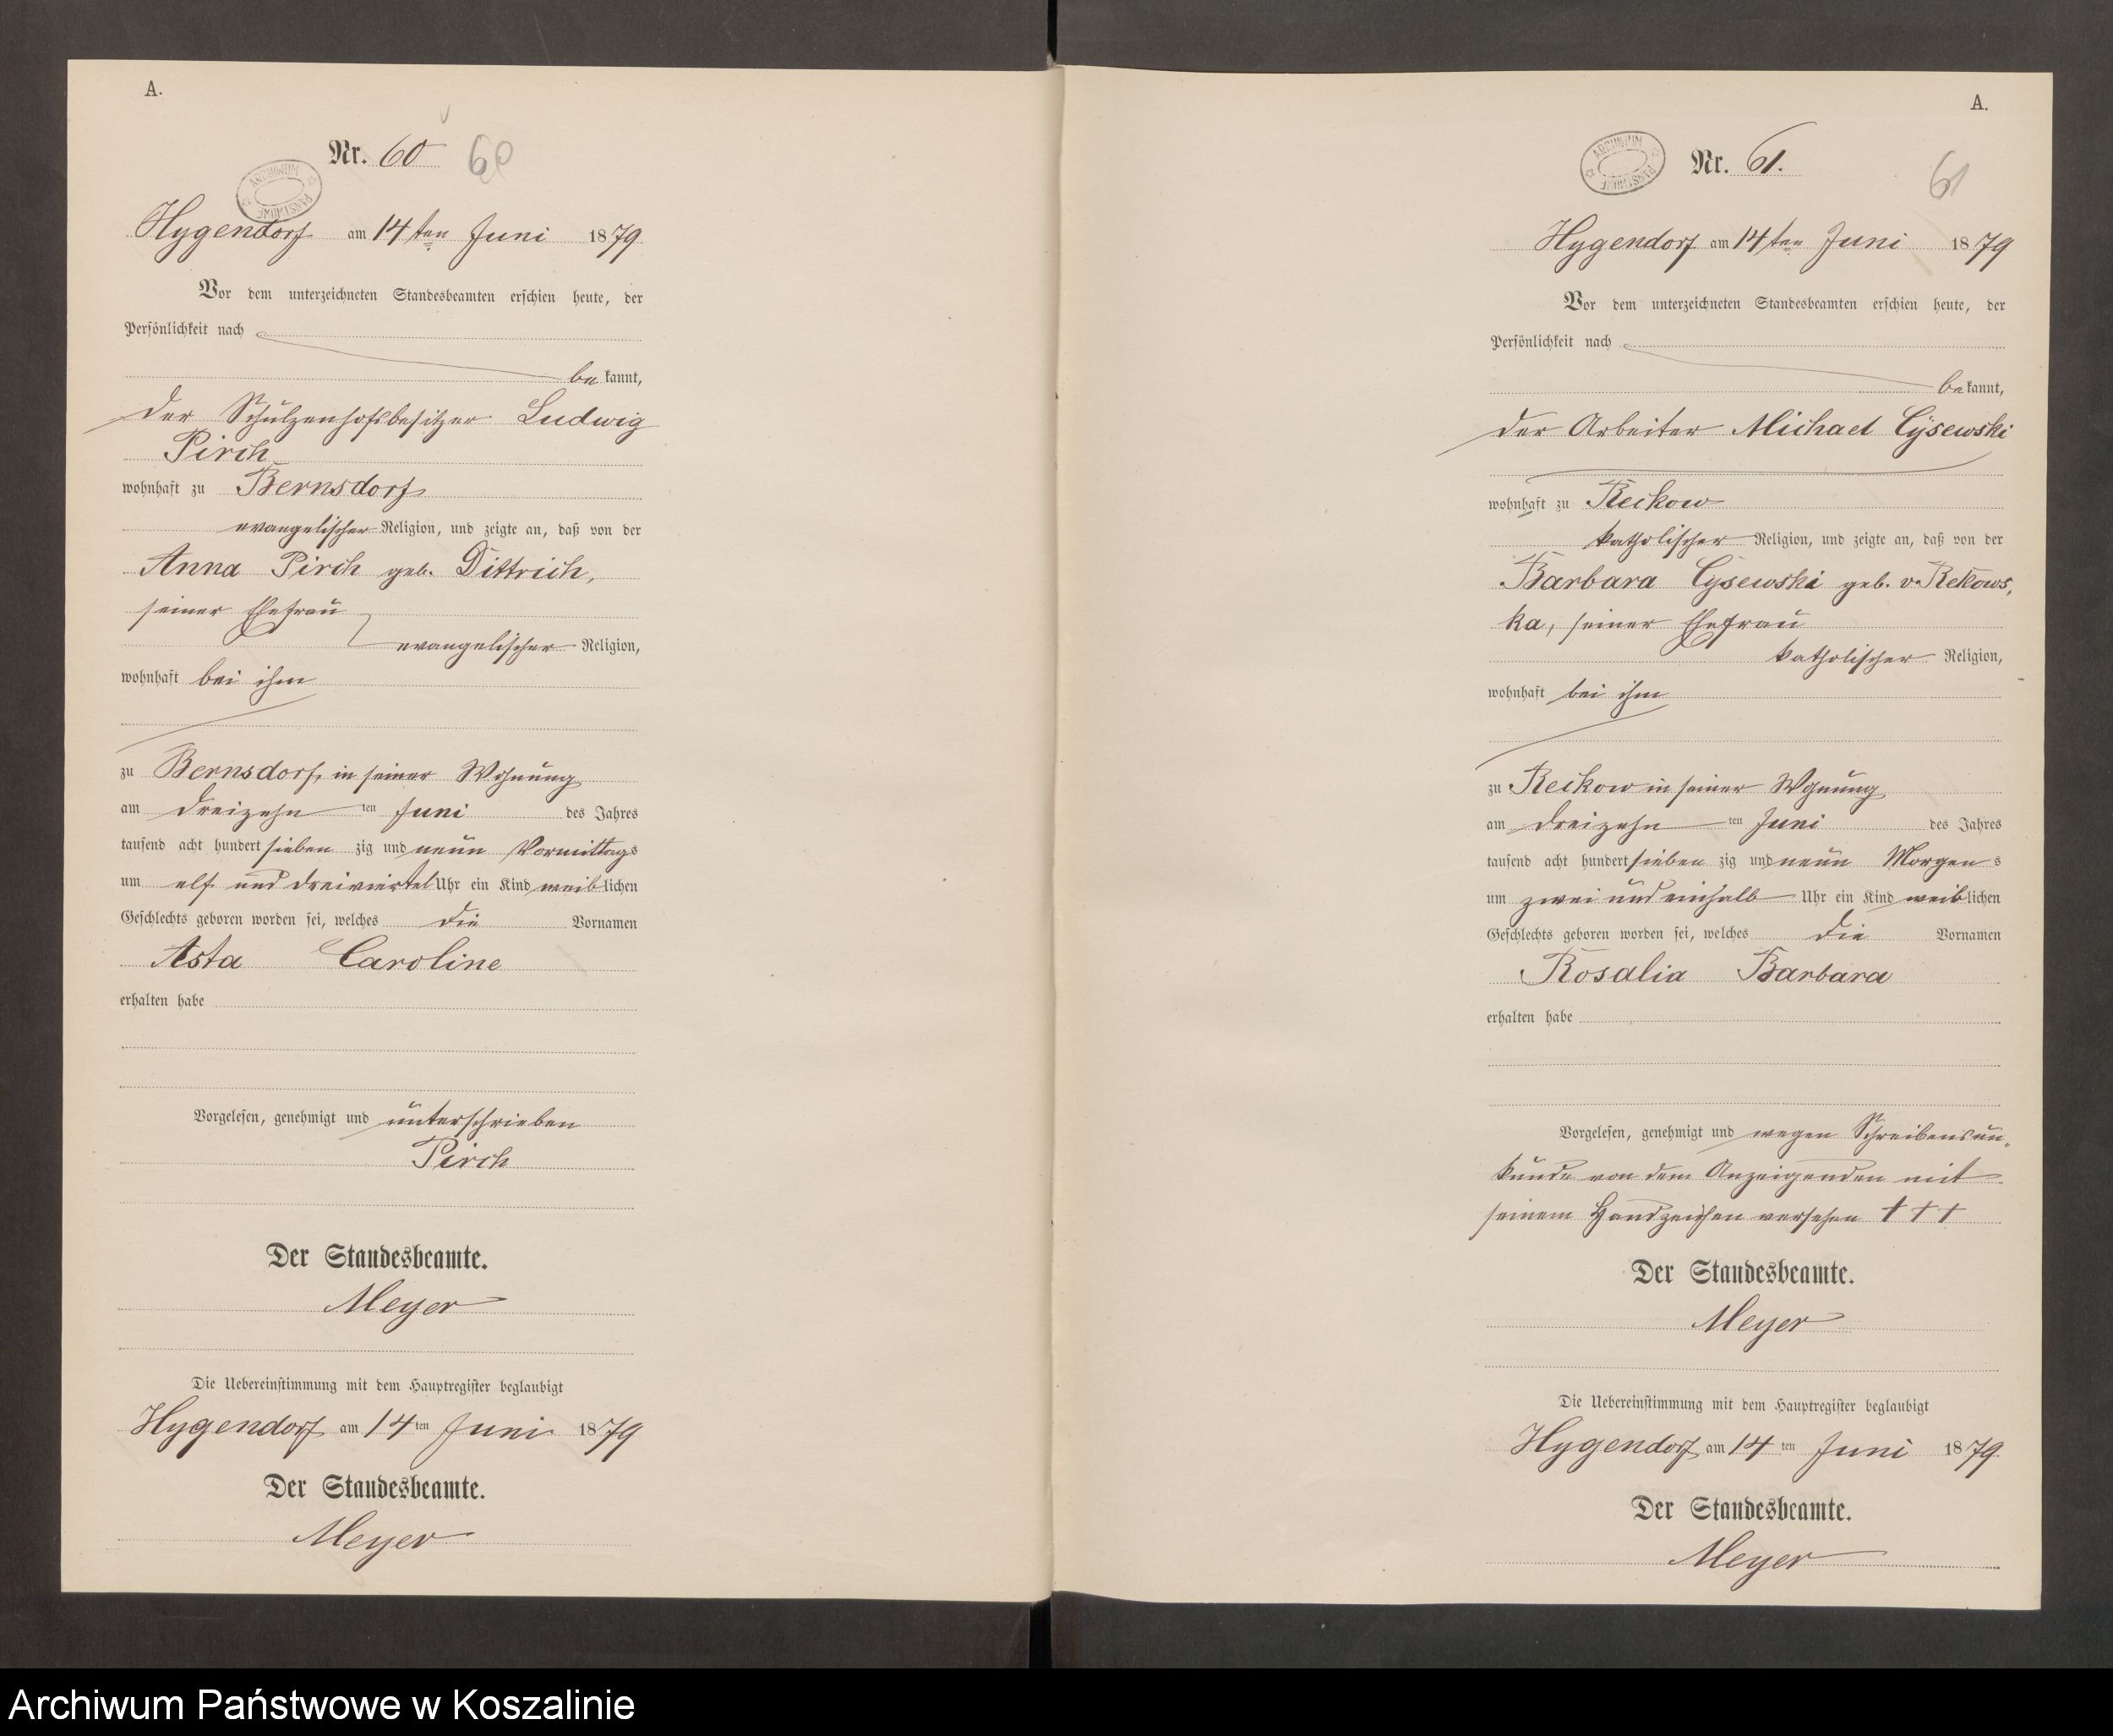 A.
Nr. 60
60
ARCHIWUM PAŃSTWOWE
Hygendorf am 14ten Juni 1879
Vor dem unterzeichneten Standesbeamten erschien heute, der
Persönlichkeit nach
be kannt,
der Schulzenhofsbesitzer Ludwig
Pirch
wohnhaft zu Bernsdorf
evangelischer Religion, und zeigte an, daß von der
Anna Pirch geb. Dittrich,
seiner Ehefrau
evangelischer Religion,
wohnhaft bei ihm
zu Bernsdorf, in seiner Wohnung
am dreizehn ten Juni des Jahres
tausend acht hundert sieben zig und neun Vormittags
um elf und dreiviertel Uhr ein Kind weiblichen
Geschlechts geboren worden sei, welches die Vornamen
Asta Caroline
erhalten habe
Vorgelesen, genehmigt und unterschrieben
Pirch
Der Standesbeamte.
Meyer
Die Uebereinstimmung mit dem Hauptregister beglaubigt
Hygendorf am 14ten Juni 1879
Der Standesbeamte.
Meyer
A.
ARCHIWUM PAŃSTWOWE
Nr. 61.
61
Hygendorf am 14ten Juni 1879
Vor dem unterzeichneten Standesbeamten erschien heute, der
Persönlichkeit nach
be kannt,
der Arbeiter Michael Cysewski
wohnhaft zu Reckow
katholischer Religion, und zeigte an, daß von der
Barbara Cysewski geb. v. Rekows,
ka, seiner Ehefrau
katholischer Religion,
wohnhaft bei ihm
zu Reckow in seiner Wohnung
am dreizehn ten Juni des Jahres
tausend acht hundert sieben zig und neun Morgen s
um zwei und einhalb Uhr ein Kind weiblichen
Geschlechts geboren worden sei, welches die Vornamen
Rosalia Barbara
erhalten habe
Vorgelesen, genehmigt und wegen Schreibensun-
kunde von dem Anzeigenden mit
seinem Handzeichen versehen +++
Der Standesbeamte.
Meyer
Die Uebereinstimmung mit dem Hauptregister beglaubigt
Hygendorf am 14ten Juni 1879.
Der Standesbeamte.
Meyer
Archiwum Państwowe w Koszalinie